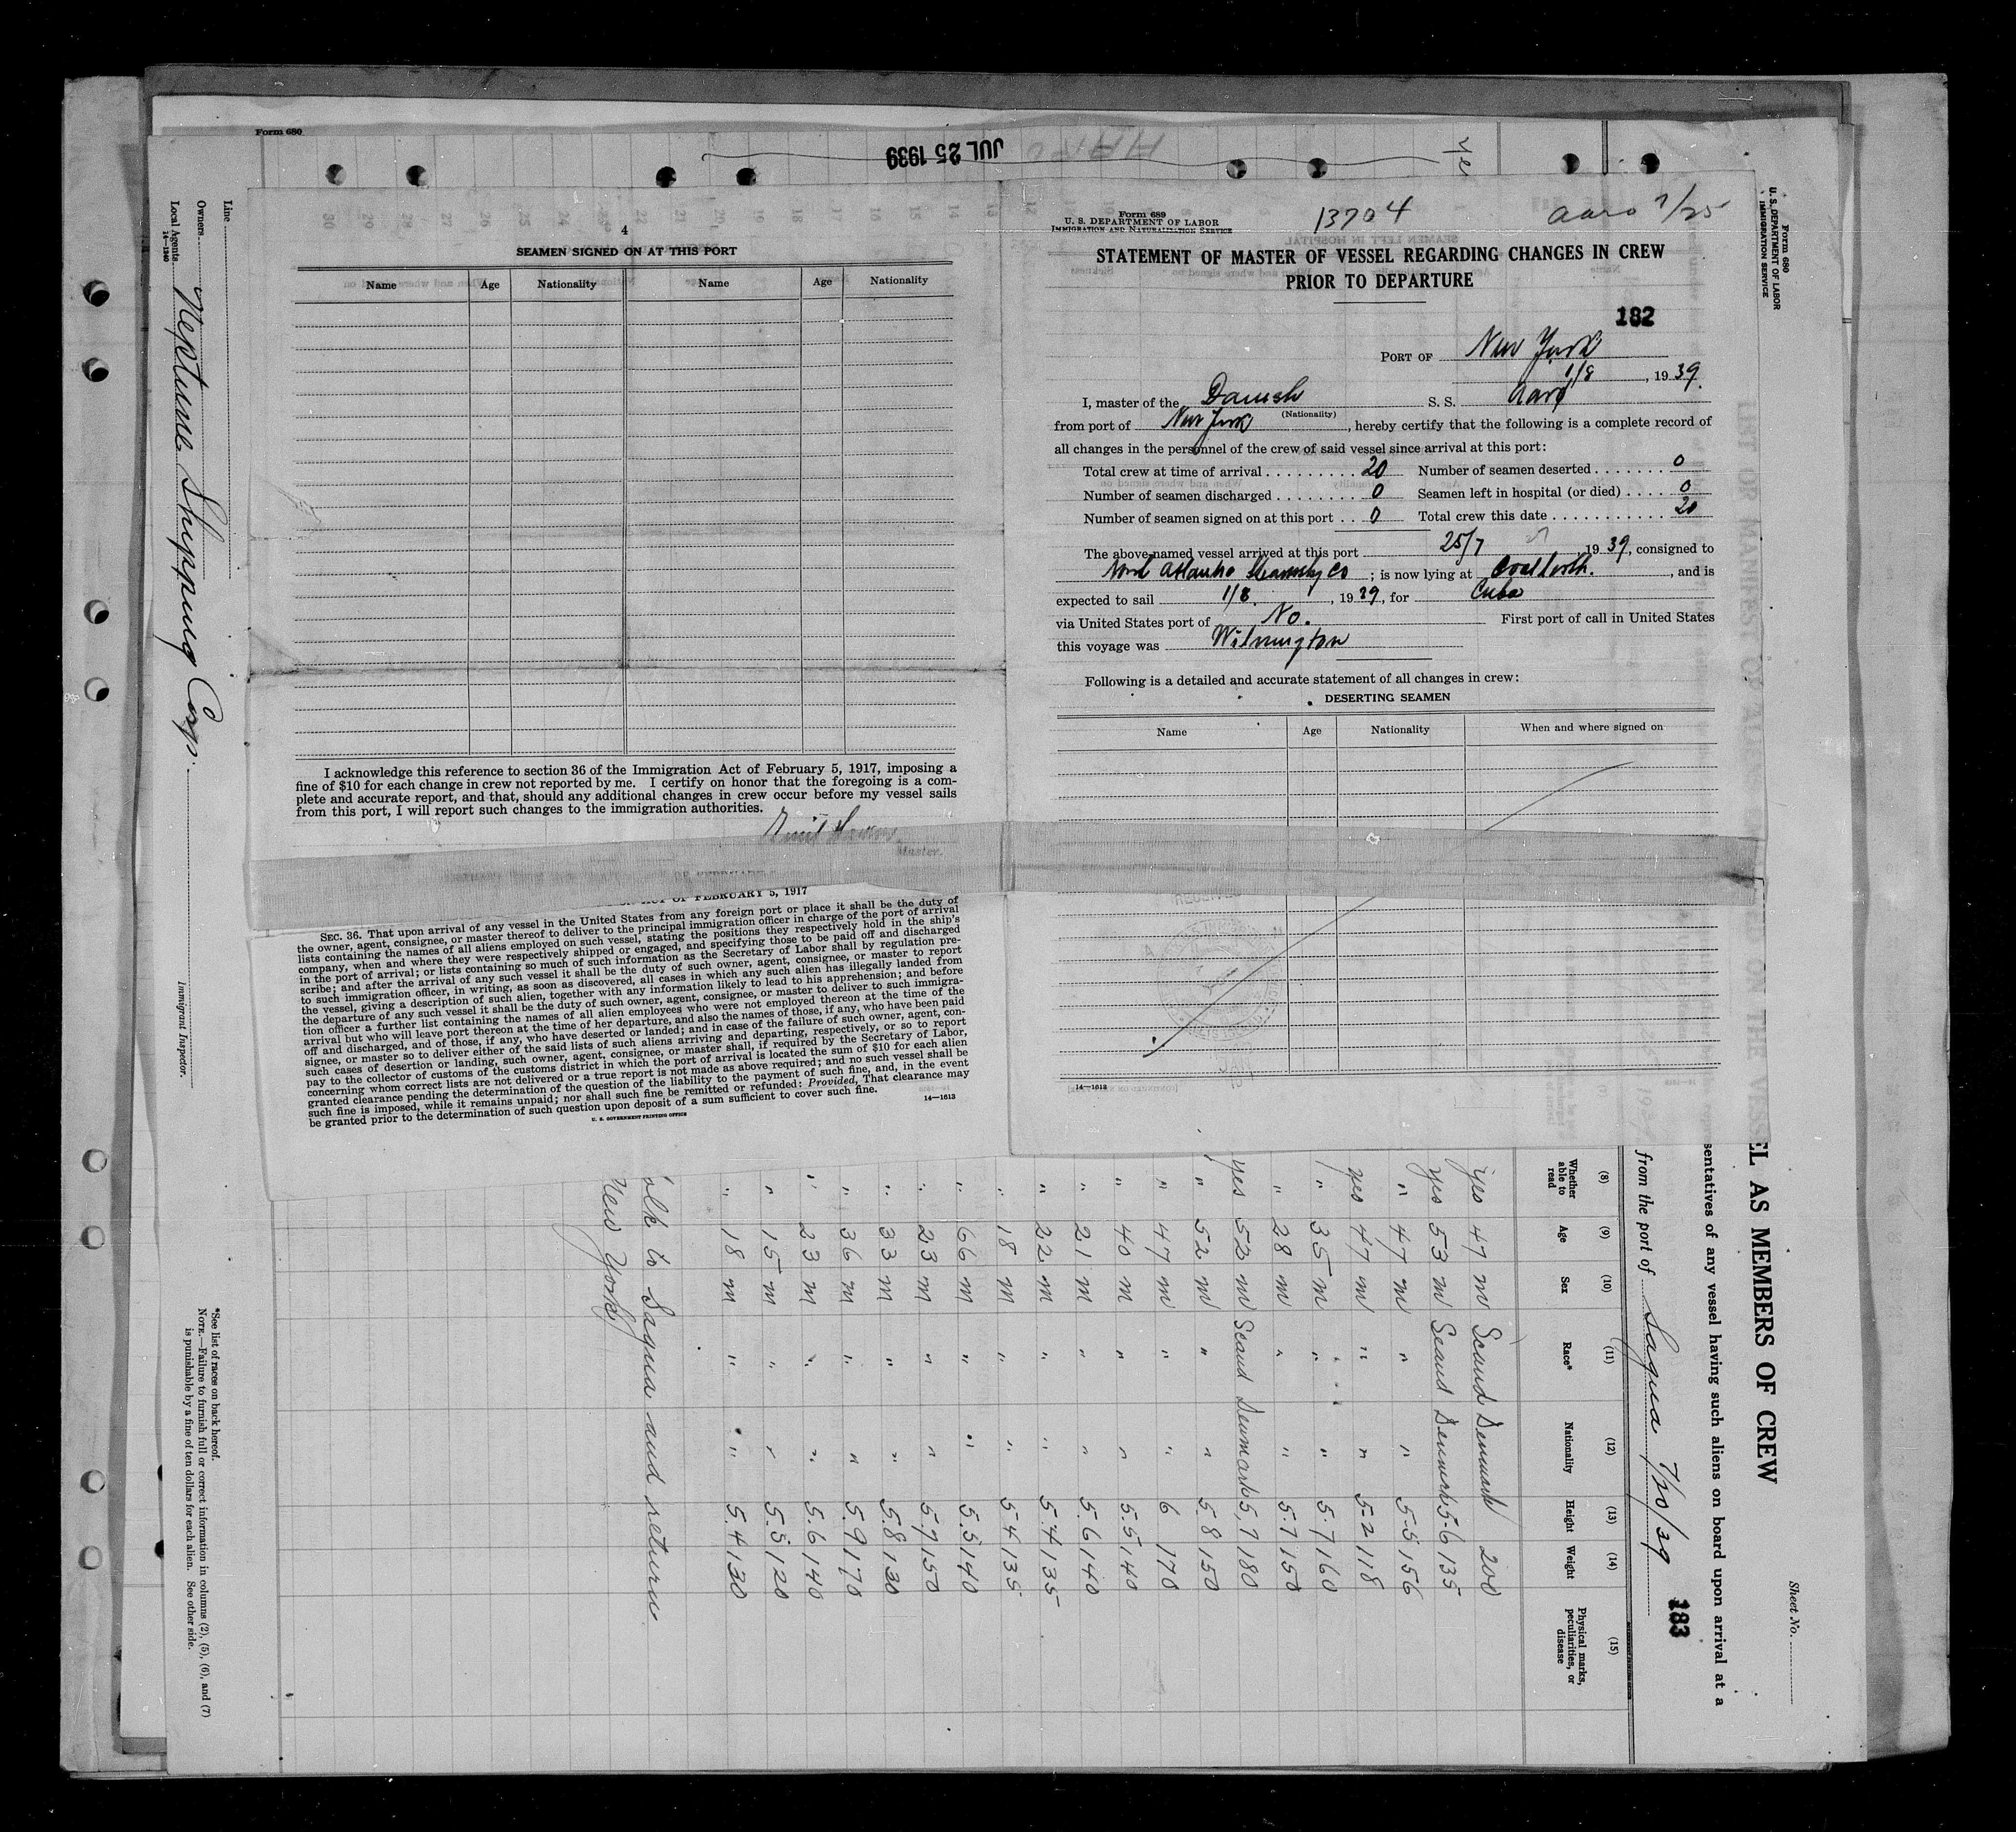 Form 680
JUL 25 1939
yes
Line
Owners
Local Agents Neptune Shipping Corp.
14—1240
Immigrant Inspector.
*See list of races on back hereof.
NOTE.—Failure to furnish full or correct information in columns (2), (5), (6), and (7)
is punishable by a fine of ten dollars for each alien. See other side.
4
SEAMEN SIGNED ON AT THIS PORT
Name Age Nationality Name Age Nationality
I acknowledge this reference to section 36 of the Immigration Act of February 5, 1917, imposing a
fine of $10 for each change in crew not reported by me. I certify on honor that the foregoing is a com-
plete and accurate report, and that, should any additional changes in crew occur before my vessel sails
from this port, I will report such changes to the immigration authorities.
Emil
Master.
ACT OF FEBRUARY 5, 1917
SEC. 36. That upon arrival of any vessel in the United States from any foreign port or place it shall be the duty of
the owner, agent, consignee, or master thereof to deliver to the principal immigration officer in charge of the port of arrival
lists containing the names of all aliens employed on such vessel, stating the positions they respectively hold in the ship's
company, when and where they were respectively shipped or engaged, and specifying those to be paid off and discharged
in the port of arrival; or lists containing so much of such information as the Secretary of Labor shall by regulation pre-
scribe; and after the arrival of any such vessel it shall be the duty of such owner, agent, consignee, or master to report
to such immigration officer, in writing, as soon as discovered, all cases in which any such alien has illegally landed from
the vessel, giving a description of such alien, together with any information likely to lead to his apprehension; and before
the departure of any such vessel it shall be the duty of such owner, agent, consignee, or master to deliver to such immigra-
tion officer a further list containing the names of all alien employees who were not employed thereon at the time of the
arrival but who will leave port thereon at the time of her departure, and also the names of those, if any, who have been paid
off and discharged, and of those, if any, who have deserted or landed; and in case of the failure of such owner, agent, con-
signee, or master so to deliver either of the said lists of such aliens arriving and departing, respectively, or so to report
such cases of desertion or landing, such owner, agent, consignee, or master shall, if required by the Secretary of Labor,
pay to the collector of customs of the customs district in which the port of arrival is located the sum of $10 for each alien
concerning whom correct lists are not delivered or a true report is not made as above required; and no such vessel shall be
granted clearance pending the determination of the question of the liability to the payment of such fine, and, in the event
such fine is imposed, while it remains unpaid; nor shall such fine be remitted or refunded: Provided, That clearance may
be granted prior to the determination of such question upon deposit of a sum sufficient to cover such fine.
U. S. GOVERNMENT PRINTING OFFICE
14—1613
Form 689
U. S. DEPARTMENT OF LABOR
IMMIGRATION AND NATURALIZATION SERVICE
13704
aaro 7/25
STATEMENT OF MASTER OF VESSEL REGARDING CHANGES IN CREW
PRIOR TO DEPARTURE
182
PORT OF New York
1/8, 1939.
I, master of the Danish S. S. Aarø
(Nationality)
from port of New York, hereby certify that the following is a complete record of
all changes in the personnel of the crew of said vessel since arrival at this port:
Total crew at time of arrival 20 Number of seamen deserted 0
Number of seamen discharged 0 Seamen left in hospital (or died) 0
Number of seamen signed on at this port 0 Total crew this date 20
The above-named vessel arrived at this port 25/7 1939, consigned to
North Atlantic Steamship Co; is now lying at, and is
expected to sail 1/8, 1939, for Cuba
via United States port of No. First port of call in United States
this voyage was Wilmington
Following is a detailed and accurate statement of all changes in crew:
DESERTING SEAMEN
Name Age Nationality When and where signed on
14—1613
Form 680
U. S. DEPARTMENT OF LABOR
IMMIGRATION SERVICE
Sheet No.
EL AS MEMBERS OF CREW
sentatives of any vessel having such aliens on board upon arrival at a
from the port of Sagua 7/20/39
183
(8) (9) (10) (11) (12) (13) (14) (15)
Whether able to read Age Sex Race* Nationality Height Weight Physical marks, peculiarities, or disease
yes 47 m Scand Denmark 200
yes 53 m Scand Denmark 5-6 135
" 47 m " " 5-5 156
yes 47 m " " 5-2 118
" 35 m " " 5.7 160
" 28 m " " 5.7 150
yes 52 m Scand Denmark 5,7 180
" 52 m " " 5.8 150
" 47 m " " 6 170
" 40 m " " 5.5 140
" 21 m " " 5.6 140
" 22 m " " 5.4 135
" 18 m " " 5.4 135
" 66 m " " 5.5 140
" 23 m " " 5.7 150
" 33 m " " 5.8 130
" 36 m " " 5.9 170
" 23 m " " 5.6 140
" 15 m " " 5.5 120
" 18 m " " 5.4 130
olk to Sagua and return
New York